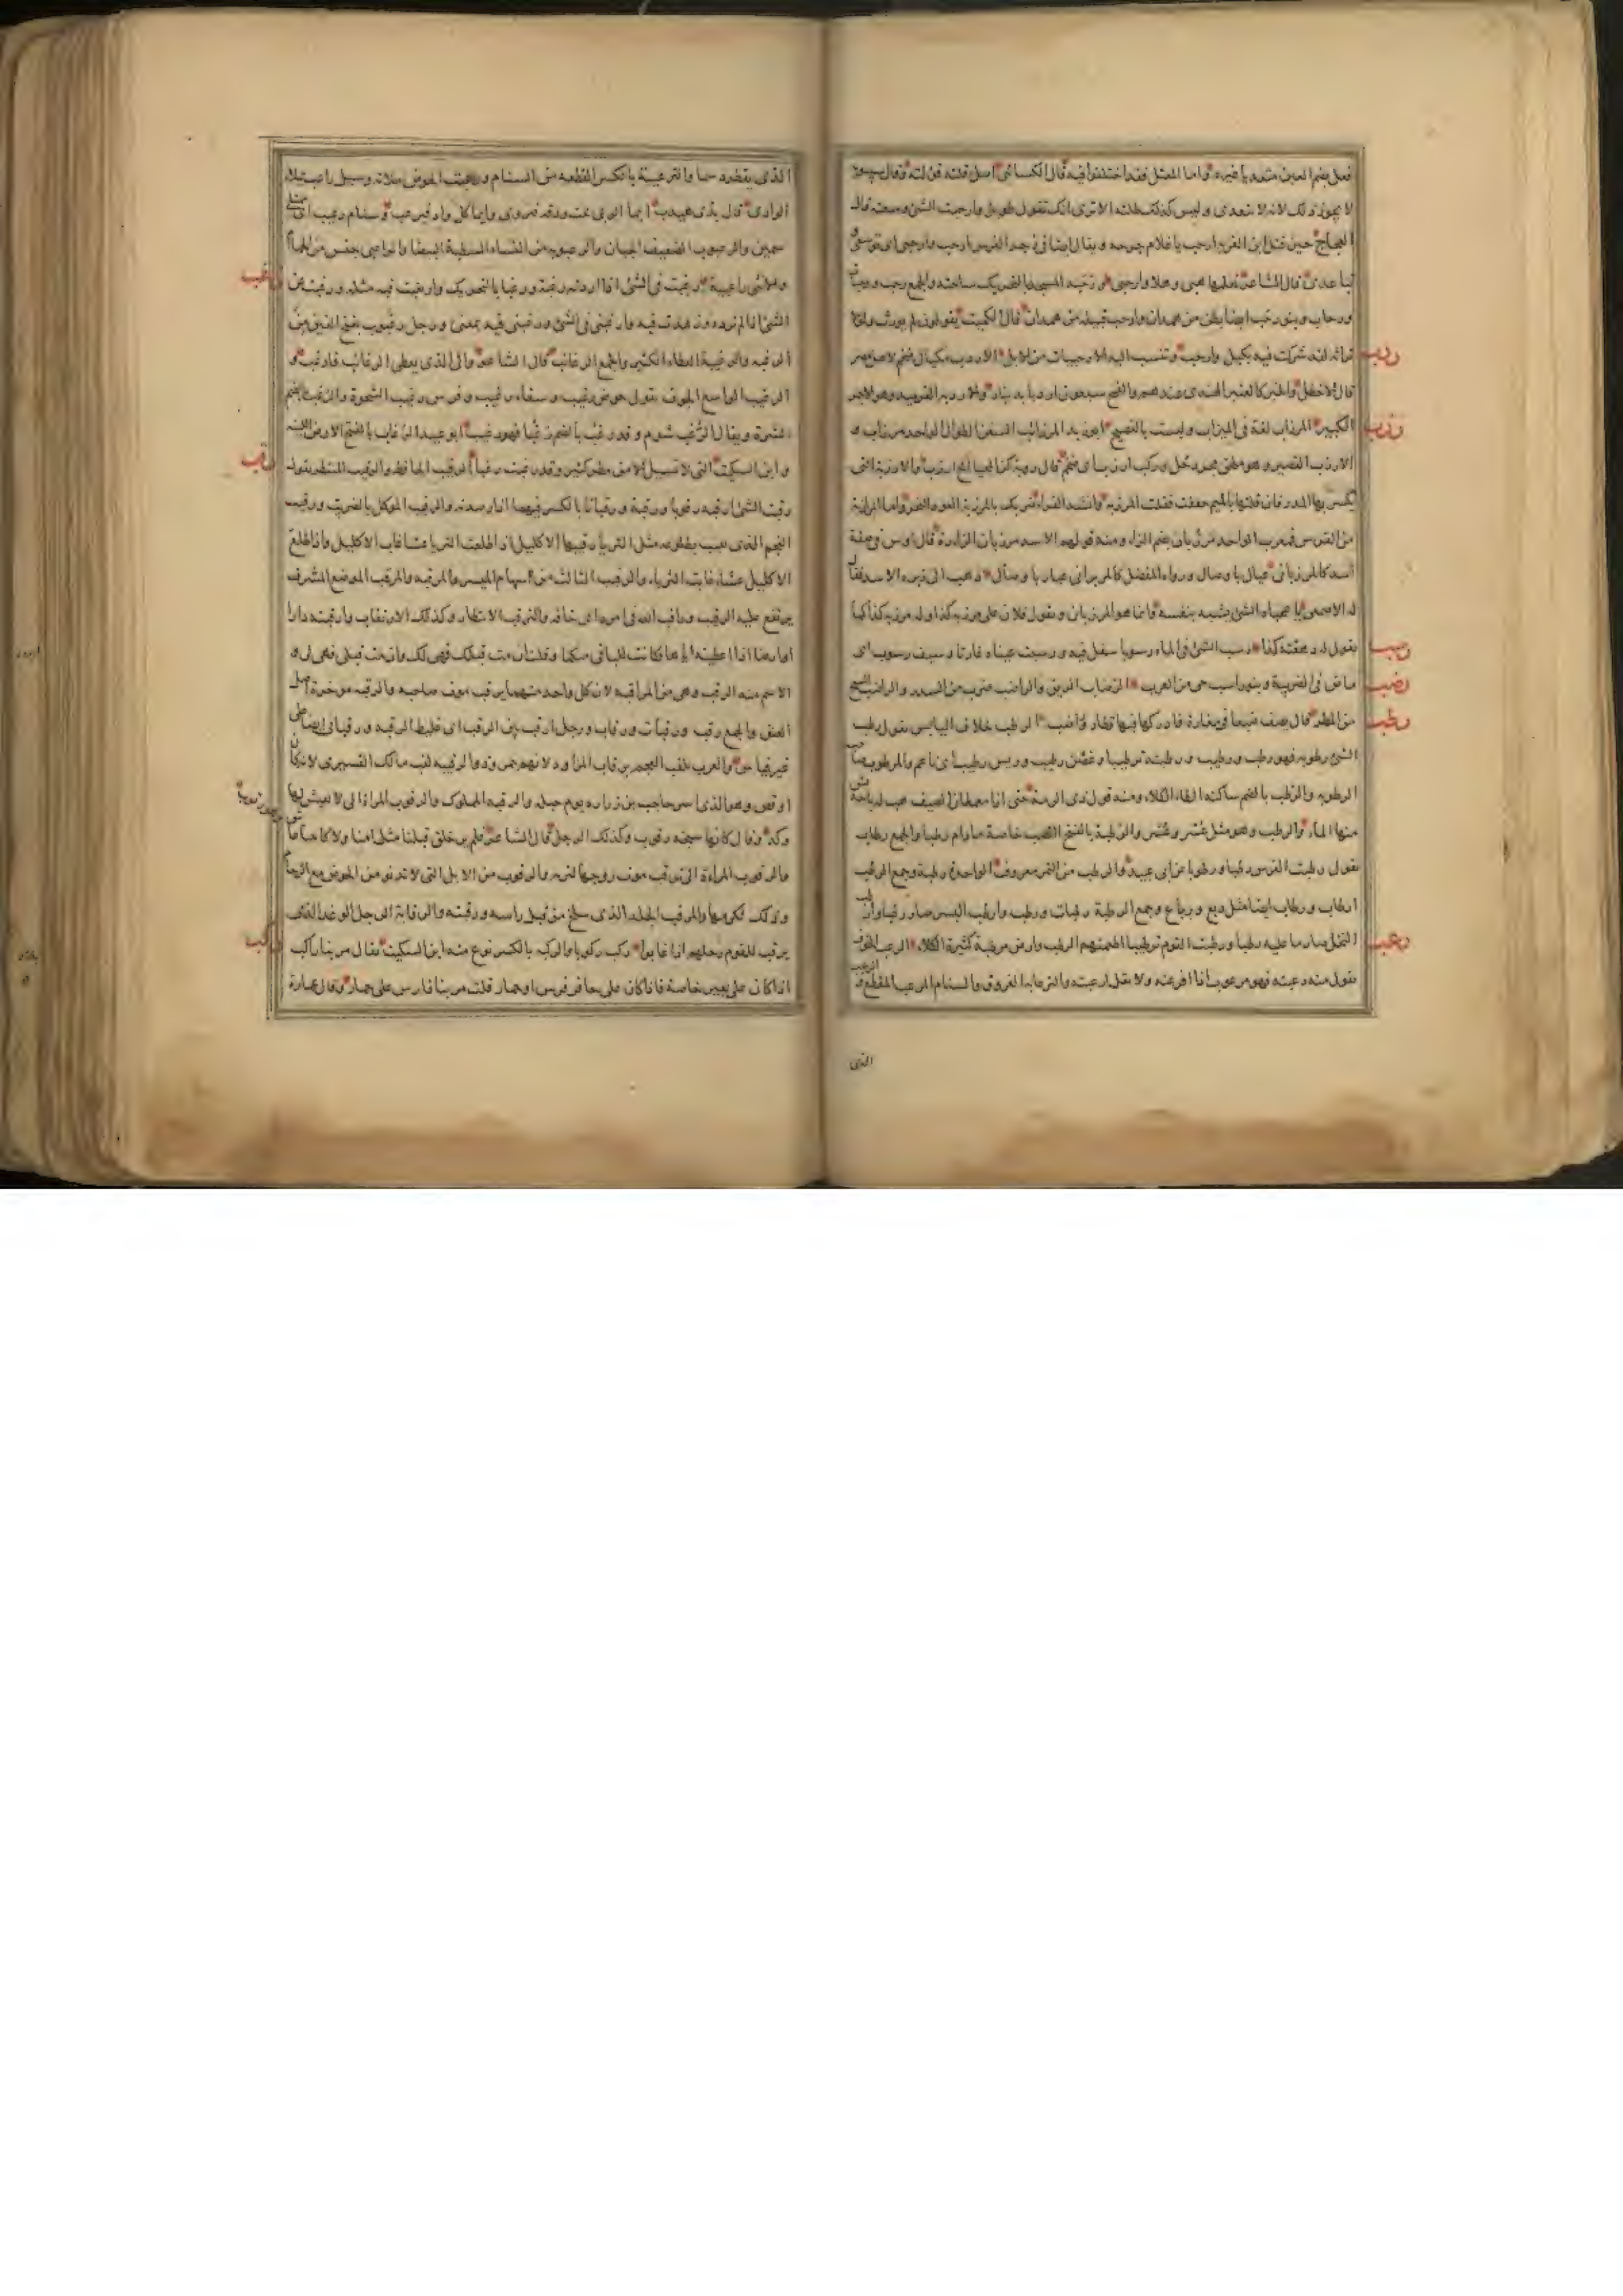 فعل بضم العين متعديا غيره واما المعتل فقد اختلفوا فيه قال الكسائي اصل قلته قولته وقال سيبويه
لا يجوز ذلك لانه لا يتعدى وليس كذلك طلته الا ترى انك تقول طويل وارحبت الشئ وسعته قال
الحجاج حين قتل ابن القرية ارحب يا غلام جرحه ويقال ايضا في زجر الفرس ارحب وارحبى اى توسعى و
تباعدى قال الشاعر نعلمها هبى وهلا وارحبى ورحبة المسجد بالتحريك ساحته والجمع رحب ورحبات
ورحاب وبنو رحب ايضا بطن من همدان وارحب قبيلة من همدان قال الكميت يقولون لم يورث ولولا
تراثه لقد شركت فيه بكيل وارحب وتنسب اليه الارحبيات من الابل الاردب مكيال ضخم لاهل مصر
ردب
قال الاخطل والخبز كالعنبر الهندى عندهم والقمح سبعون اردبا بدينار والاردبة القرميد وهو الاجر
الكبير المرزاب لغة في الميزاب وليست بالفصيح ابو زيد المرزاب السفن الطوال الواحد مرزاب و
رزب
الارزب القصير وهو ملحق بجردحل وركب ارزب اى ضخم قال رؤبة كز المحيا انح ارزب والارزبة التى
يكسر بها المدر فان قلتها بالميم خففت فقلت المرزبه وانشد الفراء ضربك بالمرزبة العود النخر واما المرازبة
من الفرس فمعرب الواحد مرزبان بضم الزاء ومنه قولهم للاسد مرزبان الزارة قال اوس في صفة
اسد كالمرزبانى عيال باوصال ورواه المفضل كالمزبرانى عيار باوصال ذهب الى زبره الاسد فقال
له الاصمعى يا عجباه الشئ يشبه بنفسه وانما هو المرزبانى وتقول فلان على مرزبه كذا وله مرزبه كذا كما
تقول له دهقنه كذا رسب الشئ في الماء رسوبا سفل فيه ورسبت عيناه غارتا وسيف رسوب اى
رسب
ماض في الضريبة وبنو راسب حى من العرب الرضاب الريق والراضب ضرب من السدر والراضب السح
رضب
من المطر قال يصف ضبعا في مغارة فادركها فيها قطار وراضب الرطب خلاف اليابس تقول رطب
رطب
الشئ رطوبه فهو رطب ورطيب ورطبته ترطيبا وغصن رطيب وريش رطيب اى ناعم والمرطوب صاحب
الرطوبه والرطب بالضم ساكنة الطاء الكلاء ومنه قول ذى الرمة حتى اذا معمعان الصيف هب له باجة نش
منها الماء والرطب وهو مثل عسر وعسر والرطبة بالفتح القضب خاصة مادام رطبا والجمع رطاب
تقول رطبت الفرس رطبا ورطوبا عن ابى عبيد والرطب من التمر معروف الواحدة رطبة وجمع الرطب
ارطاب ورطاب ايضا مثل ربع ورباع وجمع الرطبة رطبات ورطب وارطب البسر صار رطبا وارطب
النخل صار ما عليه رطبا ورطبت القوم ترطيبا اطعمتهم الرطب وارض مرطبة كثيرة الكلاء الرعب الخوف
رعب
تقول منه رعبته فهو مرعوب اذا افزعته ولا تقل ارعبته والترعابة الفروق والسنام المرعب المقطع والرعيب
الذى
الذى يقطر دسما والترعيبة بالكسر القطعه من السنام ورعبت الحوض ملاته وسيل راعب يملا
الوادى قال بذى هيدب ايما الربى تحت ودقه فتروى وايما كل واد فيرعب وسنام رعيب اى ممتلئ
سمين والرعبوب الضعيف الجبان والرعبوبه من النساء الشطبة البيضا والراعبى جنس من الحمام
والانثى راعبية رغبت في الشئ اذا اردته رغبة ورغبا بالتحريك وارتغبت فيه مثله ورغبت عن
رغب
الشئ اذا لم ترده وزهدت فيه وارغبنى في الشئ ورغبنى فيه بمعنى ورجل رغبوب بفتح الغين من
الرغبه والرغيبة العطاء الكثير والجمع الرغائب قال الشاعر والى الذى يعطى الرغائب فارغب و
الرغيب الواسع الجوف تقول حوض رغيب وسقاء رغيب وفرس رغيب الشحوة والرغب بضم
الشره ويقال الرغب شوم وقد رغب بالضم رغبا فهو رغيب ابو عبيد الرغاب بالفتح الارض اللينه
وابن السكيت التى لا تسيل الا من مطر كثير وقد رغبت رغبا الرقيب الحافظ والرقيب المنتظر تقول
رقب
رقبت الشئ ارقبه رقوبا ورقبة ورقبانا بالكسر فيهما اذا رصدته والرقيب الموكل بالضريب ورقيب
النجم الذى يغيب بطلوعه مثل الثريا رقيبها الاكليل اذا طلعت الثريا عشا غاب الاكليل واذا طلع
الاكليل عشاء غابت الثرياء والرقيب الثالث من سهام الميسر والمرقبه والمرقب الموضع المشرف
يرتفع عليه الرقيب وراقب الله في امره اى خافه والترقب الانتظار وكذلك الارتقاب وارقبته دارا
او ارضا اذا اعطيته اياها فكانت للباقى منكما وقلت ان مت قبلك فهى لك وان مت قبلى فهى لى و
الاسم منه الرقبى وهى من المراقبه لان كل واحد منهما يرقب موت صاحبه والرقبه موخرة اصل
العنق والجمع رقب ورقبات ورقاب ورجل ارقب بين الرقب اى غليظ الرقبه ورقبانى ايضا على
غير قياس والعرب تلقب العجم برقاب المزاود لانهم حمر وذو الرقيبه لقب مالك القشيرى لانه كان
اوقص وهو الذى اسر حاجب بن زراره يوم جبله والرقبه المملوك والرقوب المراة التى لا يعيش لها
ولد وكذلك الرجل قال الشاعر فلم ير خلق قبلنا مثل امنا ولا كابينا عاش
والرقوب المراءة التى ترقب موت زوجها لترثه والرقوب من الابل التى لا تدنو من الحوض مع الزحام
وذلك لكرمها والمرقب الجلد الذى سلخ من قبل راسه ورقبته والرقابة الرجل الوغد الذى
يرقب للقوم رحلهم اذا غابوا ركب ركوبا والركبه بالكسر نوع منه ابن السكيت تقال مر بنا راكب
ركب
اذا كان على بعير خاصة فاذا كان على حافر فرس او حمار قلت مر بنا فارس على حمار وقال عمارة